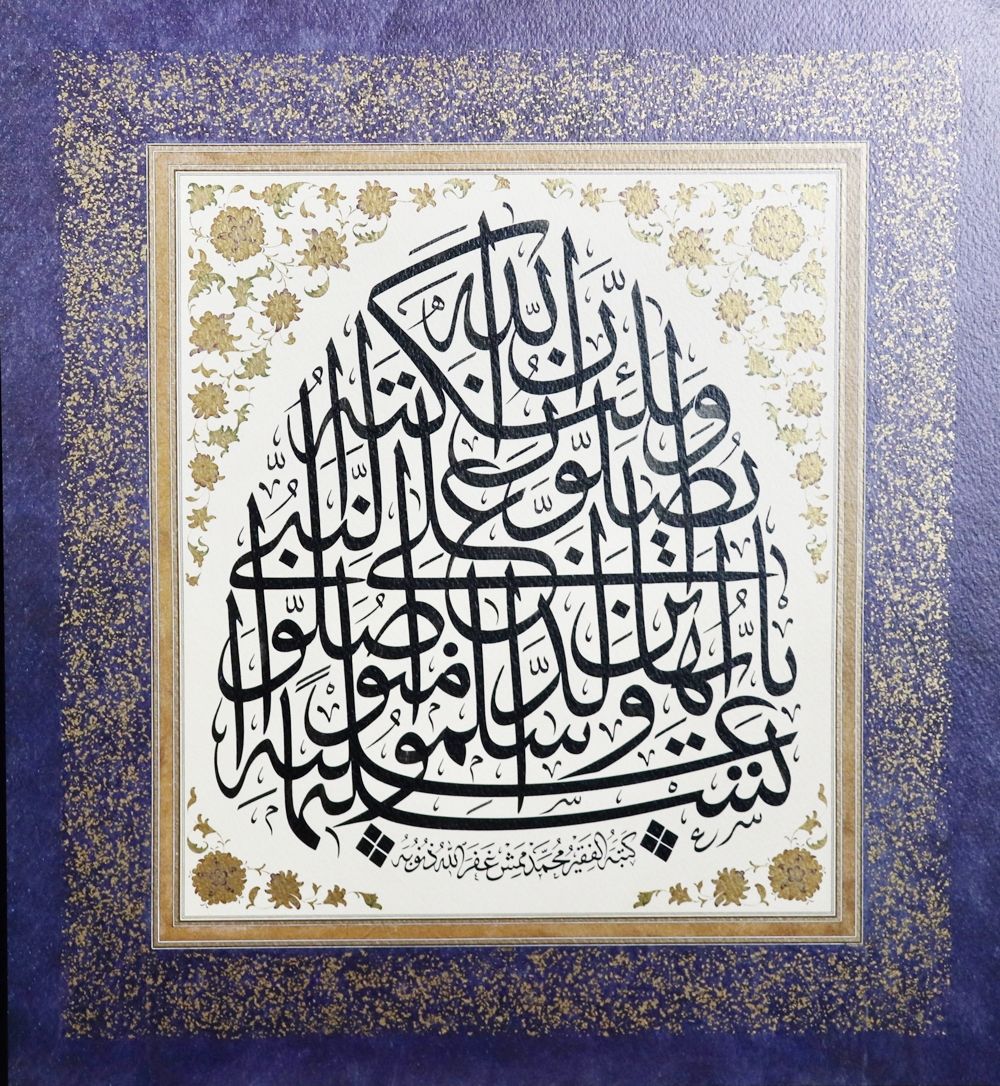 ان الله وملئكته
يصلون على النبى
يا ايها الذين امنوا صلوا
عليه وسلموا تسليما
كتبه الفقير محمد ممش غفر الله ذنوبه